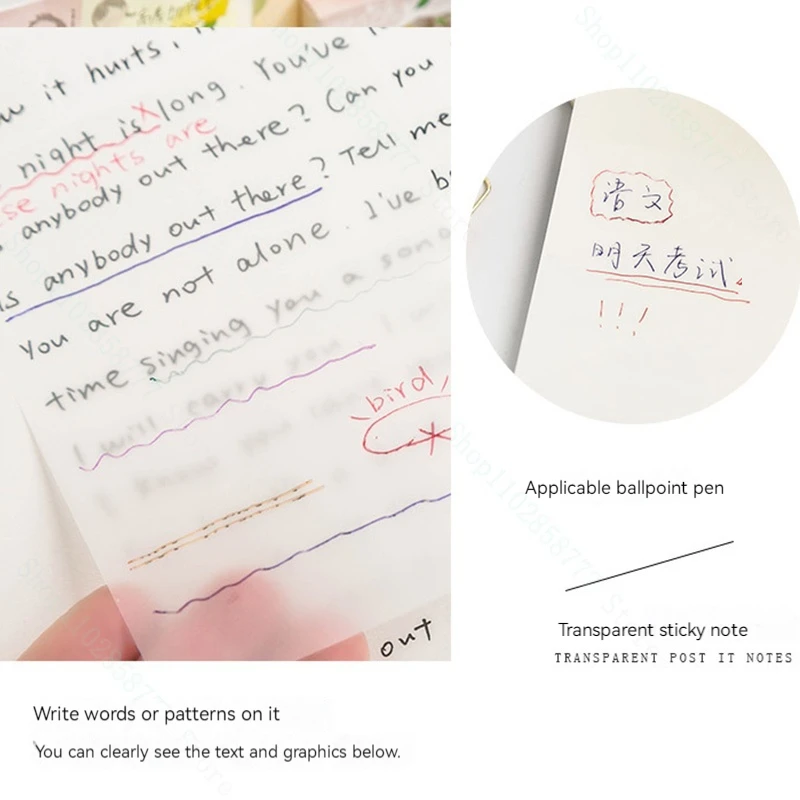 w it hurts,
night is long. You've
se nights are
anybody out there? Can you
is anybody out there? Tell me
You are not alone. I've b
time singing you a song
I will carry you
bird
out
语文
明天考试
!!!
Applicable ballpoint pen
Transparent sticky note
TRANSPARENT POST IT NOTES
Write words or patterns on it
You can clearly see the text and graphics below.
Shop1102868777 Store